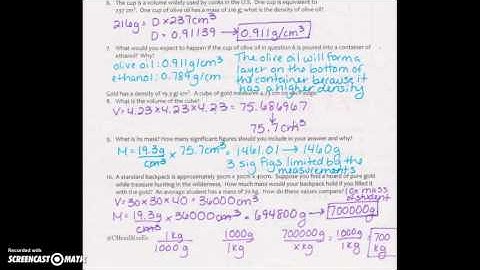 6. The cup is a volume widely used by cooks in the U.S. One cup is equivalent to
237 cm³. One cup of olive oil has a mass of 216 g, what is the density of olive oil?
216g = D × 237cm³
D = 0.91139 → 0.911g/cm³
7. What would you expect to happen if the cup of olive oil in question 6 is poured into a container of
ethanol? Why?
olive oil: 0.911g/cm³
ethanol: 0.789g/cm³
The olive oil will form a
layer on the bottom of
the container because it
has a higher density
Gold has a density of 19.3 g/cm³. A cube of gold measures 4.23 cm on each edge.
8. What is the volume of the cube?
V = 4.23 × 4.23 × 4.23 = 75.686967
75.7cm³
9. What is its mass? How many significant figures should you include in your answer and why?
M = 19.3g/cm³ × 75.7cm³ = 1461.01 → 1460g
3 sig figs limited by the
measurements
10. A standard backpack is approximately 30cm x 30cm x 40cm. Suppose you find a hoard of pure gold
while treasure hunting in the wilderness. How much mass would your backpack hold if you filled it
with the gold? An average student has a mass of 70 kg. How do these values compare?
10x mass
of student
V = 30 × 30 × 40 = 36000cm³
M = 19.3g/cm³ × 36000cm³ = 694800g → 700000g
1kg/1000g 1000g/1kg 700000g/x kg = 1000g/1kg = 700 kg
RECORDED WITH
SCREENCAST-O-MATIC